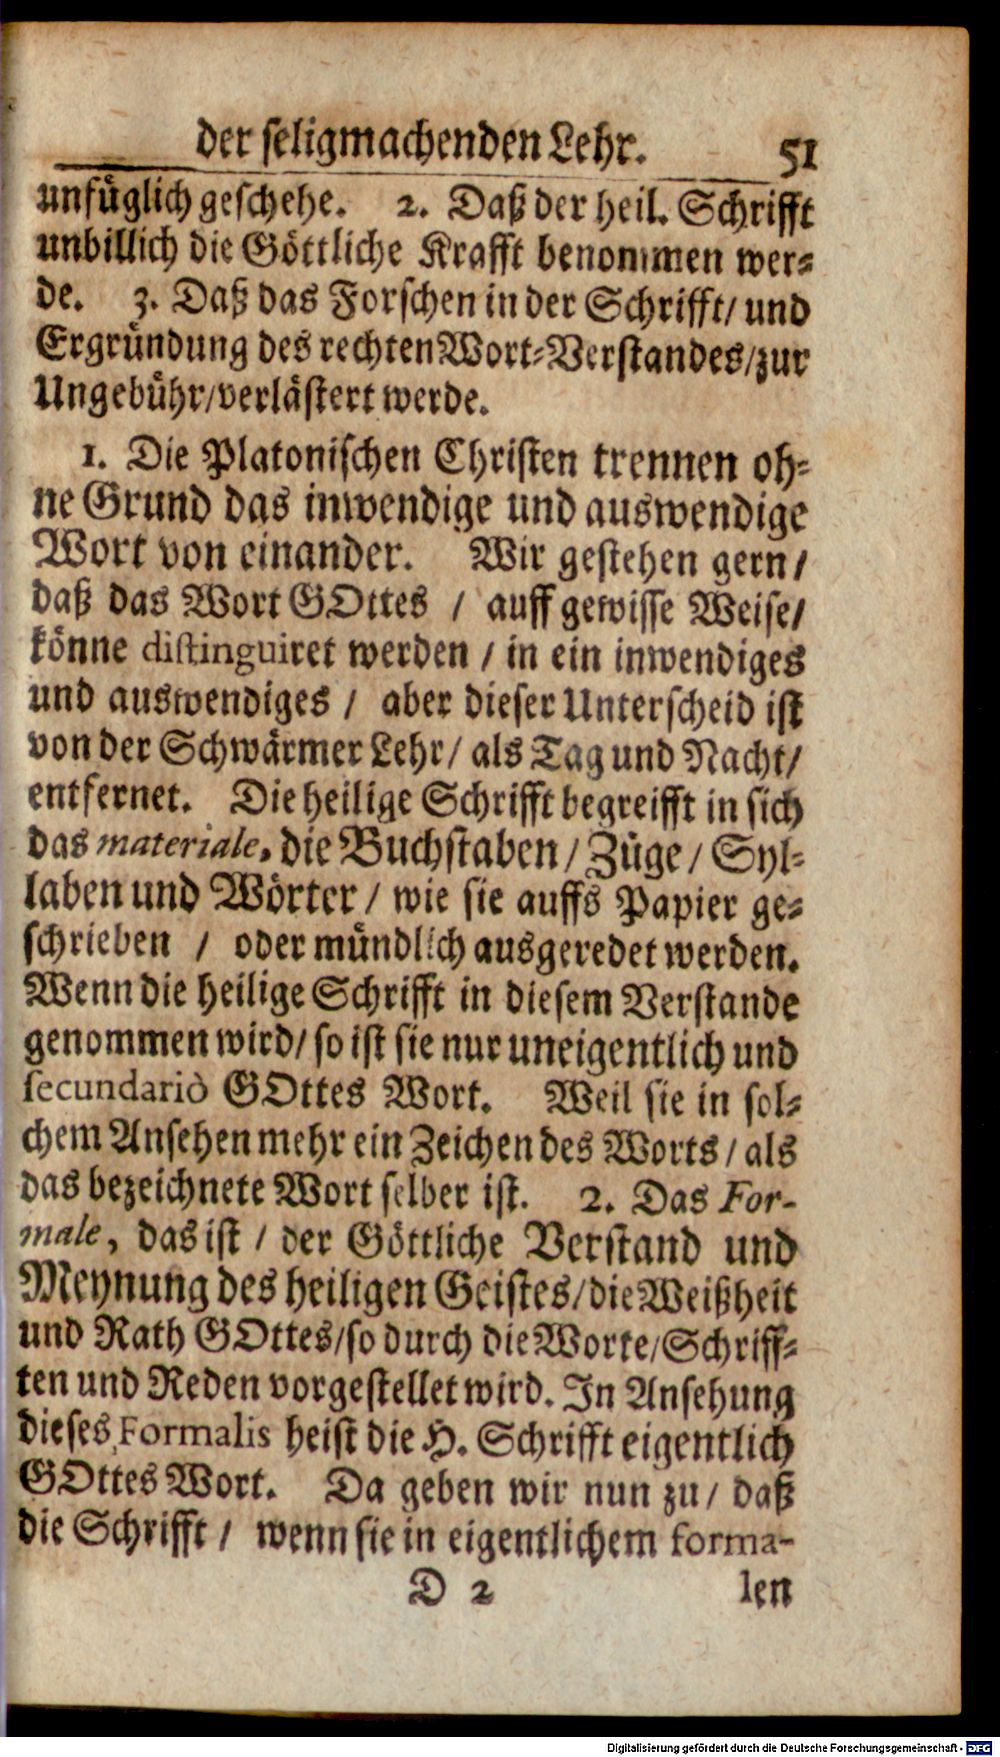 der seligmachenden Lehr. 51
unfüglich geschehe. 2. Daß der heil. Schrifft
unbillich die Göttliche Krafft benommen wer-
de. 3. Daß das Forschen in der Schrifft/ und
Ergründung des rechten Wort-Verstandes/zur
Ungebühr/verlästert werde.
1. Die Platonischen Christen trennen oh-
ne Grund das inwendige und auswendige
Wort von einander. Wir gestehen gern/
daß das Wort GOttes / auff gewisse Weise/
könne distinguiret werden / in ein inwendiges
und auswendiges / aber dieser Unterscheid ist
von der Schwärmer Lehr/ als Tag und Nacht/
entfernet. Die heilige Schrifft begreifft in sich
das materiale, die Buchstaben / Züge / Syl-
laben und Wörter / wie sie auffs Papier ge-
schrieben / oder mündlich ausgeredet werden.
Wenn die heilige Schrifft in diesem Verstande
genommen wird/ so ist sie nur uneigentlich und
secundariò GOttes Wort. Weil sie in sol-
chem Ansehen mehr ein Zeichen des Worts / als
das bezeichnete Wort selber ist. 2. Das For-
male, das ist / der Göttliche Verstand und
Meynung des heiligen Geistes/die Weißheit
und Rath GOttes/so durch die Worte/Schriff-
ten und Reden vorgestellet wird. In Ansehung
dieses Formalis heist die H. Schrifft eigentlich
GOttes Wort. Da geben wir nun zu / daß
die Schrifft / wenn sie in eigentlichem forma-
D 2 len
Digitalisierung gefördert durch die Deutsche Forschungsgemeinschaft - DFG